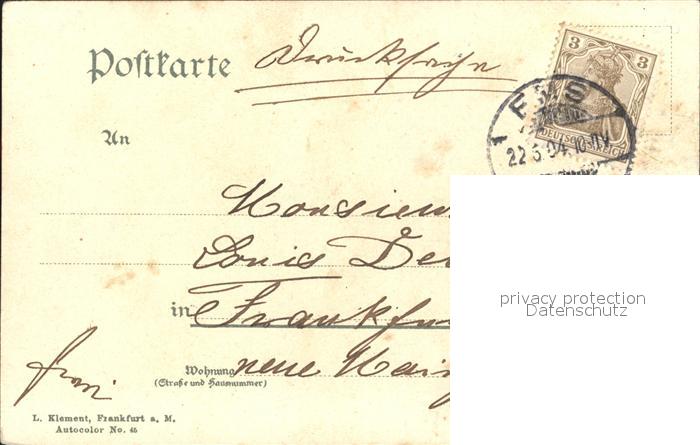 Postkarte Drucksache
3 3
DEUTSCHES REICH
22.5.04.10-11V.
An
Monsieur
Louis De
in Frankfu
Wohnung neue Main
(Straße und Hausnummer)
frei
L. Klement, Frankfurt a. M.
Autocolor No. 45
privacy protection
Datenschutz